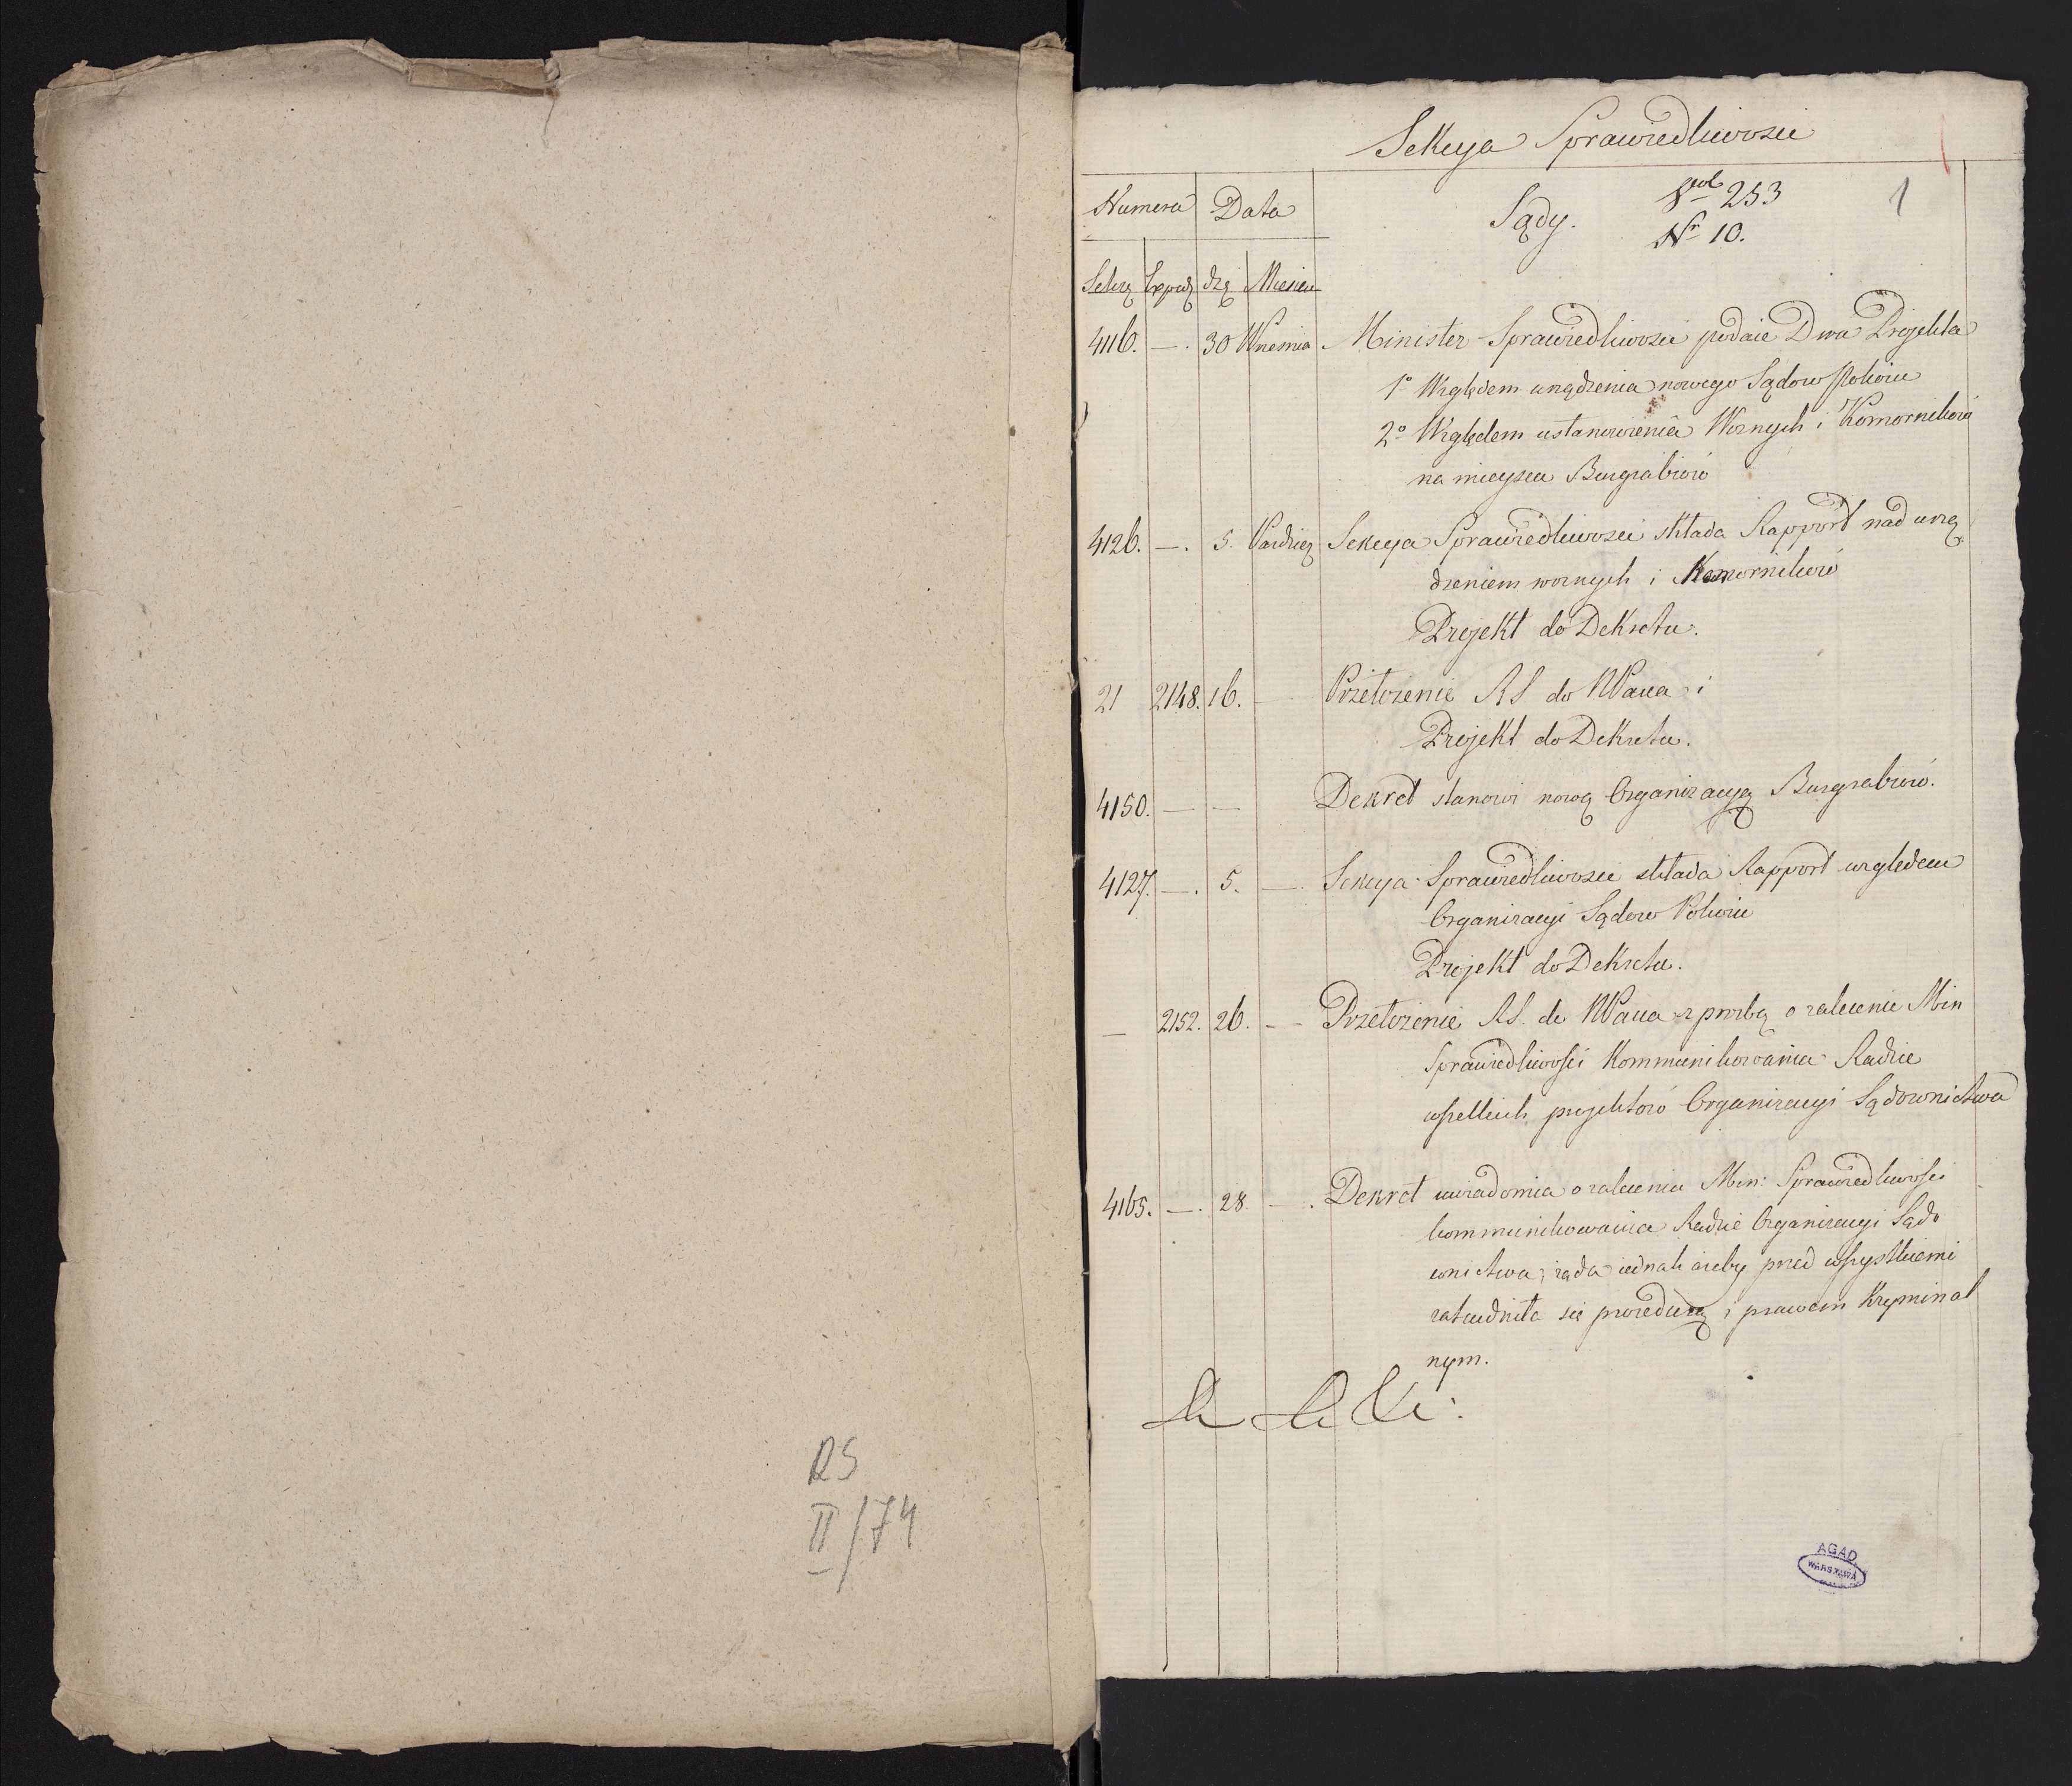 RS
II/74
Sekcya Sprawiedliwosci
Numera Data
Sądy.
Vol 253
Nr 10.
1
Sekrę Exped dzę Miesica
4116. —. 30 Wrzesnia Minister Sprawiedliwosci podaie Dwa Projekta
1° Względem urządzenia nowego Sądow Pokoiu
2° Względem ustanowienia Woznych i Komorników
na mieysca Burgrabiów
4126. —. 5. Pazdzier Sekcya Sprawiedliwosci składa Rapport nad urzą
dzeniem woznych i Komorników
Projekt do Dekretu.
21 2148. 16. — Przełożenie RS do NPana i
Projekt do Dekretu.
4150. — — Dekret stanowi nową Organizacyą Burgrabiów.
4127. —. 5. —. Sekcya Sprawiedliwosci składa Rapport względem
Organizacyi Sądow Pokoiu
Projekt do Dekretu.
— 2152. 26. — Przełożenie RS. do NPana z prozbą o zalecenie Min
Sprawiedliwości Kommunikowania Radzie
wszelkich projektów Organizacyi Sądownictwa
4165. —. 28. —. Dekret uwiadomia o zaleceniu Min: Sprawiedliwości
kommunikowania Radzie Organizacyi Sądo
wnictwa; żąda iednak ażeby przed wszystkiemi
zatrudniła się procedurą i prawem Kryminal
nym.
AGAD
WARSZAWA